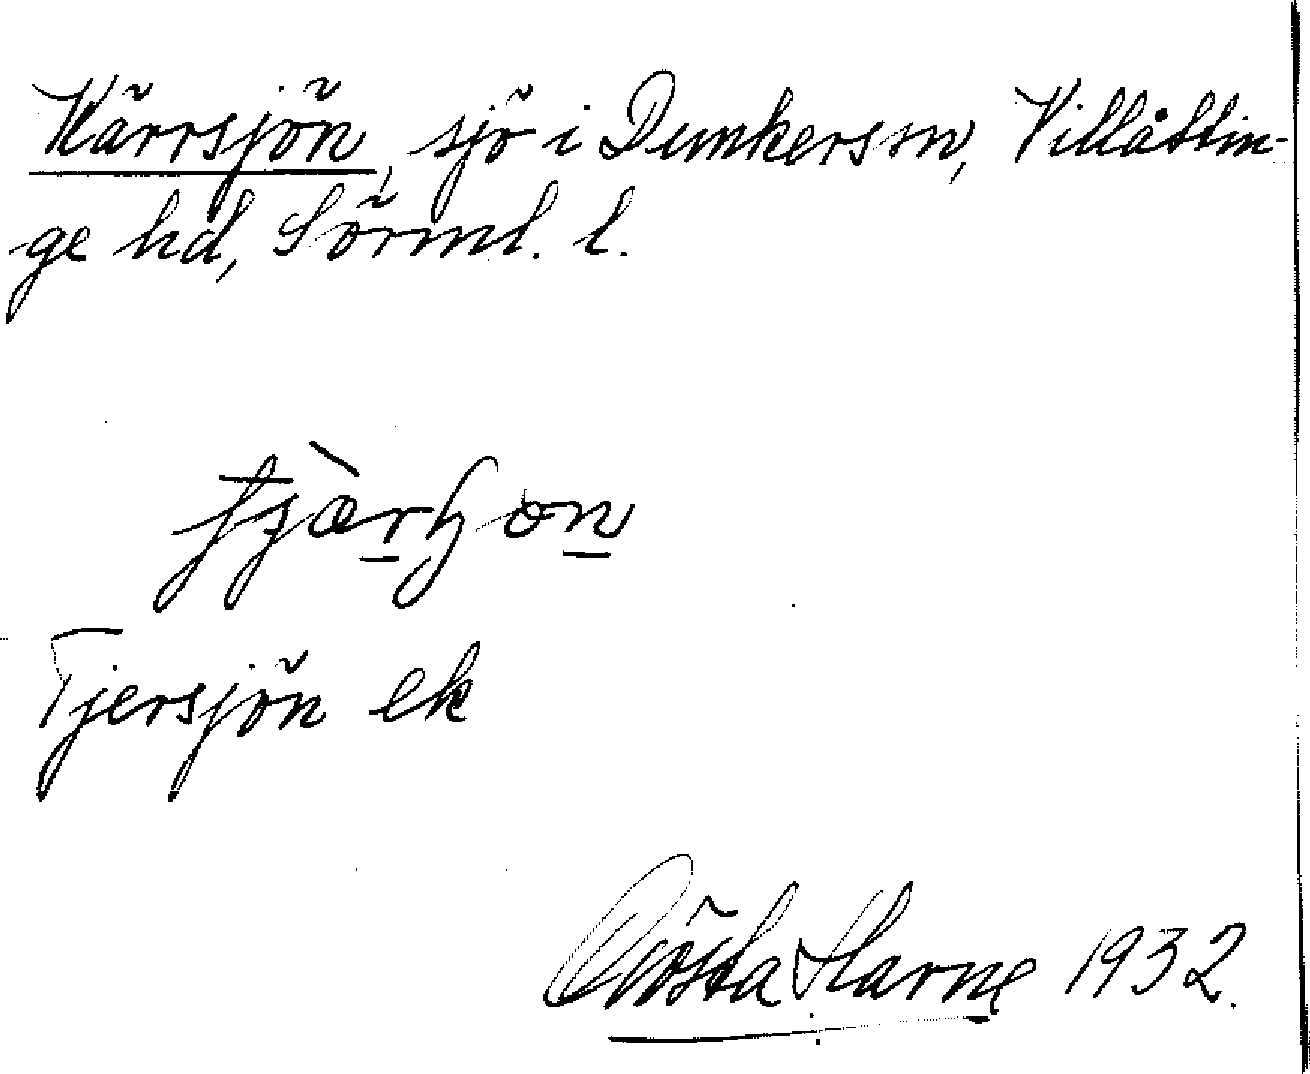 Kärrsjön, sjö i Dunkers sn, Villåttin-
ge hd, Sörml. l.
Tjersjön ek
Gösta Harne 1932.